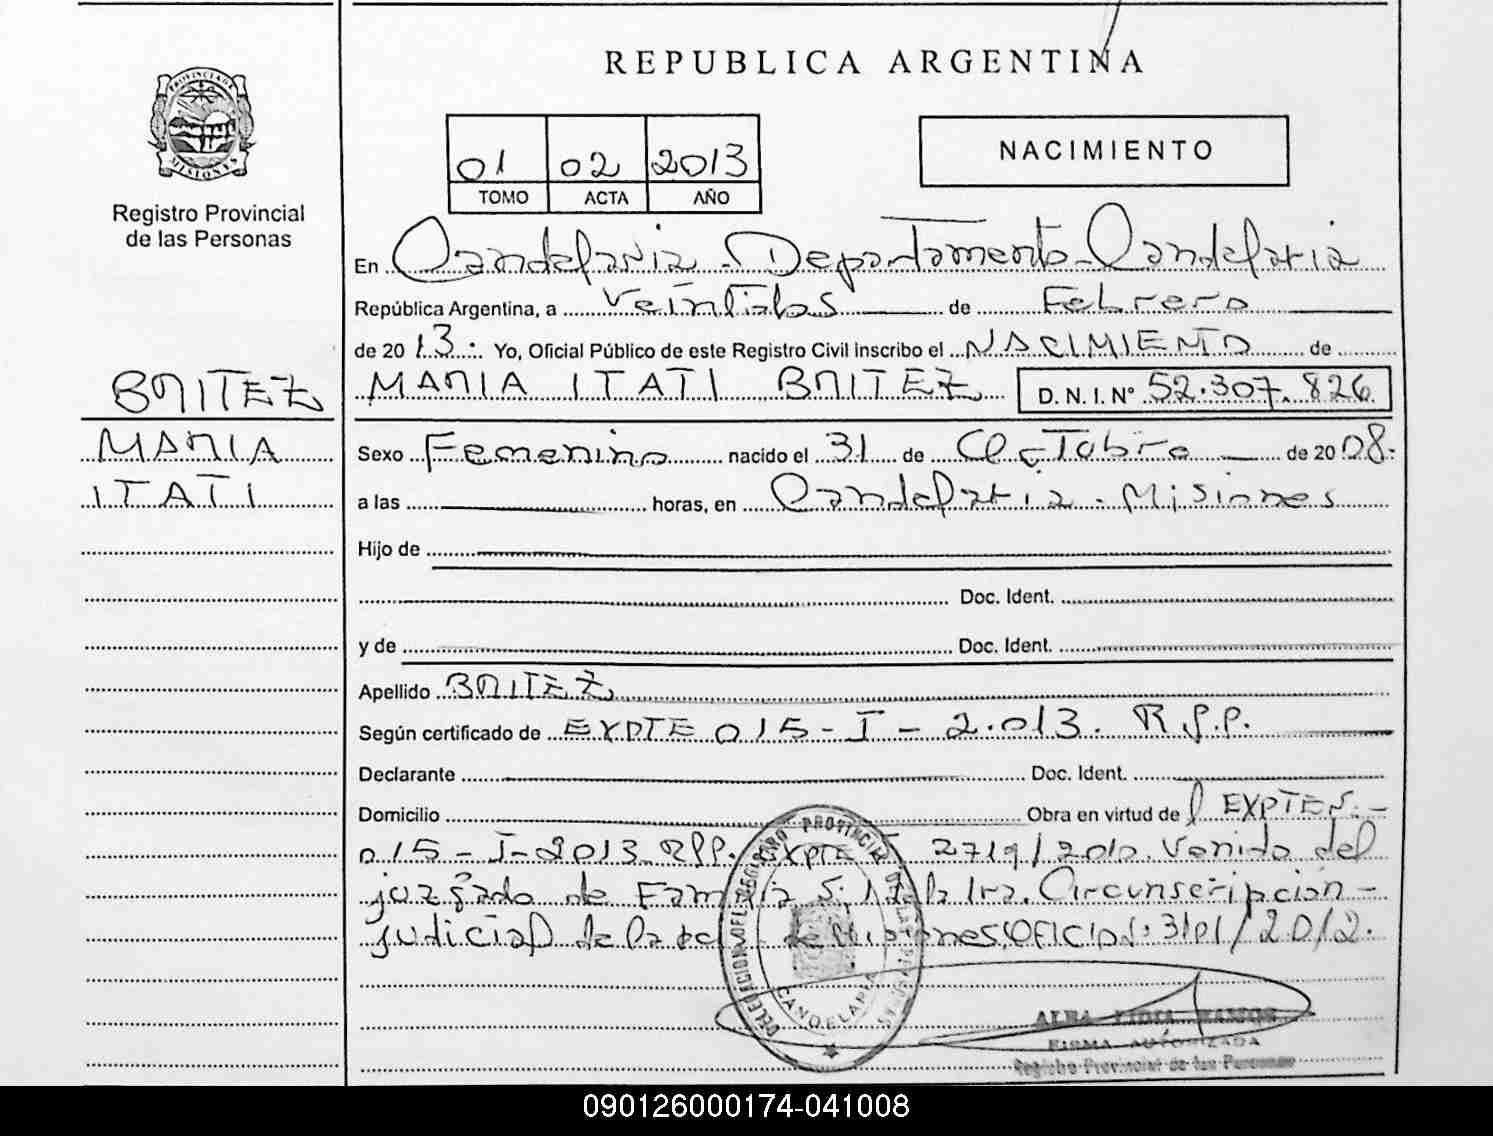 REPUBLICA ARGENTINA
PROVINCIA DE
MISIONES
Registro Provincial
de las Personas
01 02 2013
TOMO ACTA AÑO
NACIMIENTO
En Candelaria - Departamento Candelaria
República Argentina, a Veintidos de Febrero
de 2013. Yo, Oficial Público de este Registro Civil inscribo el NACIMIENTO de
BRITEZ
MARIA ITATI BRITEZ D. N. I. Nº 52.307.826
MARIA
ITATI
Sexo Femenino nacido el 31 de Octubre de 2008.
a las horas, en Candelaria - Misiones
Hijo de
Doc. Ident.
y de Doc. Ident.
Apellido BRITEZ
Según certificado de EXPTE 015-I-2.013. R.P.P.
Declarante Doc. Ident.
Domicilio Obra en virtud de EXPTES.-
015-I-2013 RPP. EXPTE 2719/2010 Venido del
juzgado de Familia de la 1ra. Circunscripción -
judicial de la pcia. de Misiones, OFICIO: 3101/2012.
DELEGACION DEL REGISTRO PROVINCIAL DE LAS
CANDELARIA
ALBA LIDIA RAMOS
FIRMA AUTORIZADA
Registro Provincial de las Personas
090126000174-041008